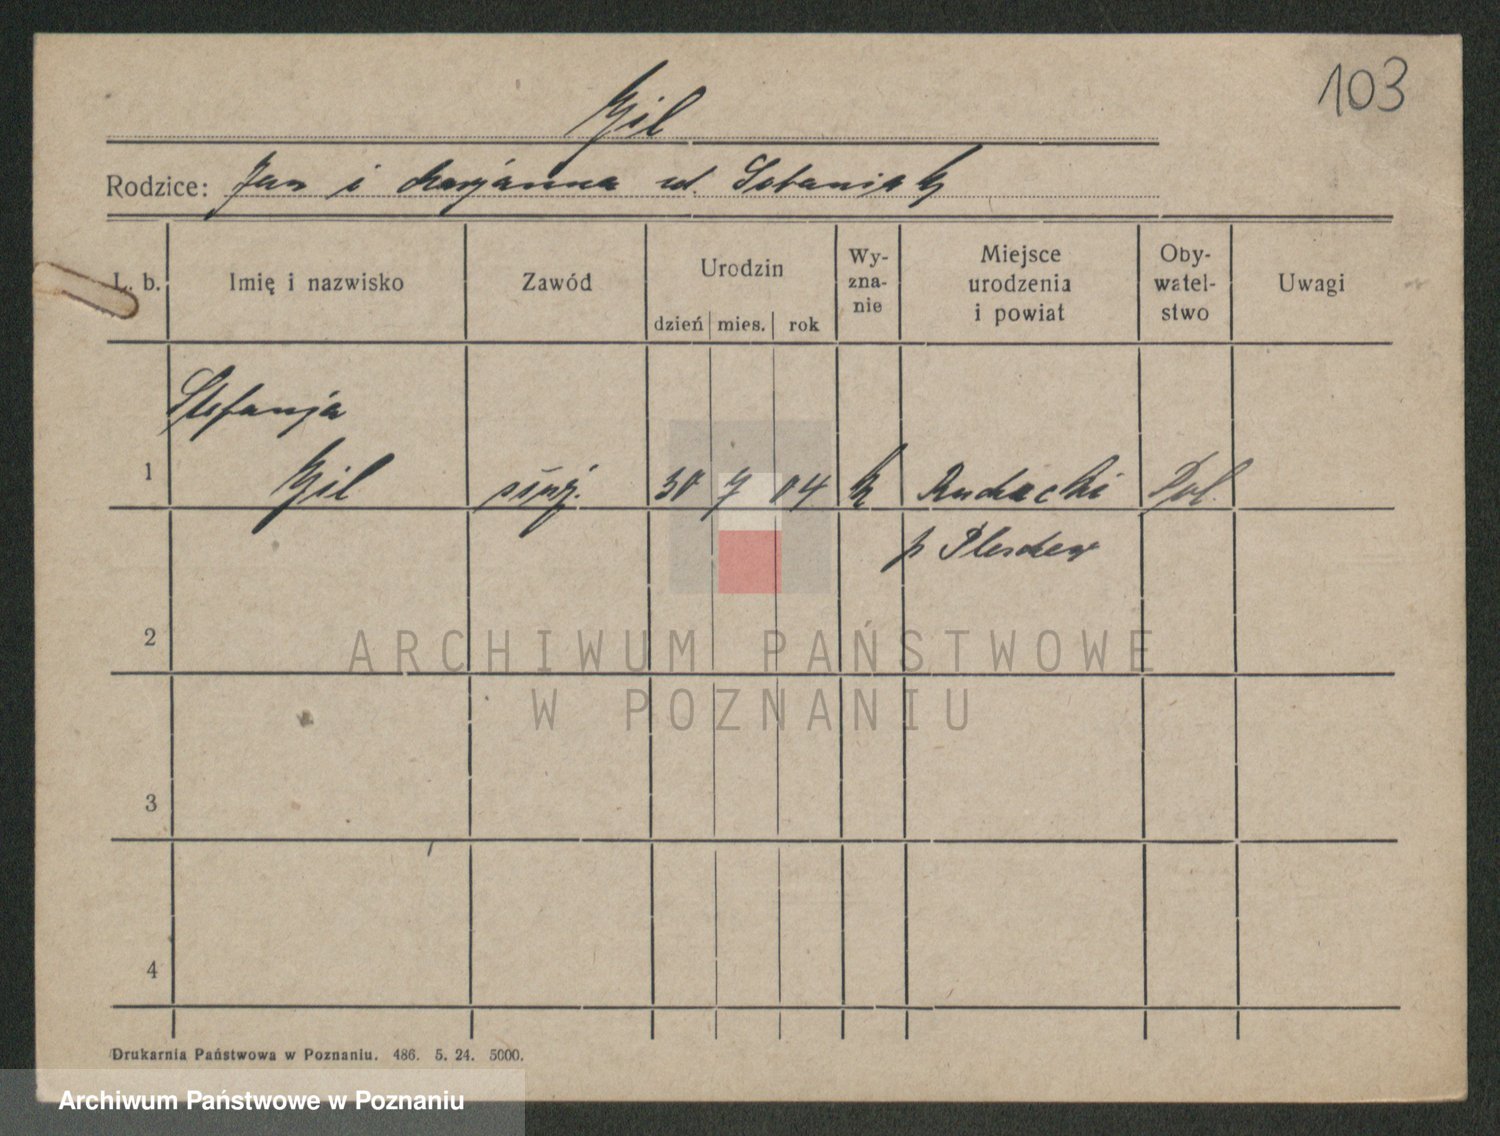 103
Gil
Rodzice: Jan i Marjanna ur. Sobaniak
L. b. Imię i nazwisko Zawód Urodzin dzień mies. rok Wy-zna-nie Miejsce urodzenia i powiat Oby-watel-stwo Uwagi
Stefanja
1 Gil służ. 30 7 04 k Pol.
p Pleschew
2
ARCHIWUM PAŃSTWOWE
W POZNANIU
3
4
Drukarnia Państwowa w Poznaniu. 486. 5. 24. 5000.
Archiwum Państwowe w Poznaniu